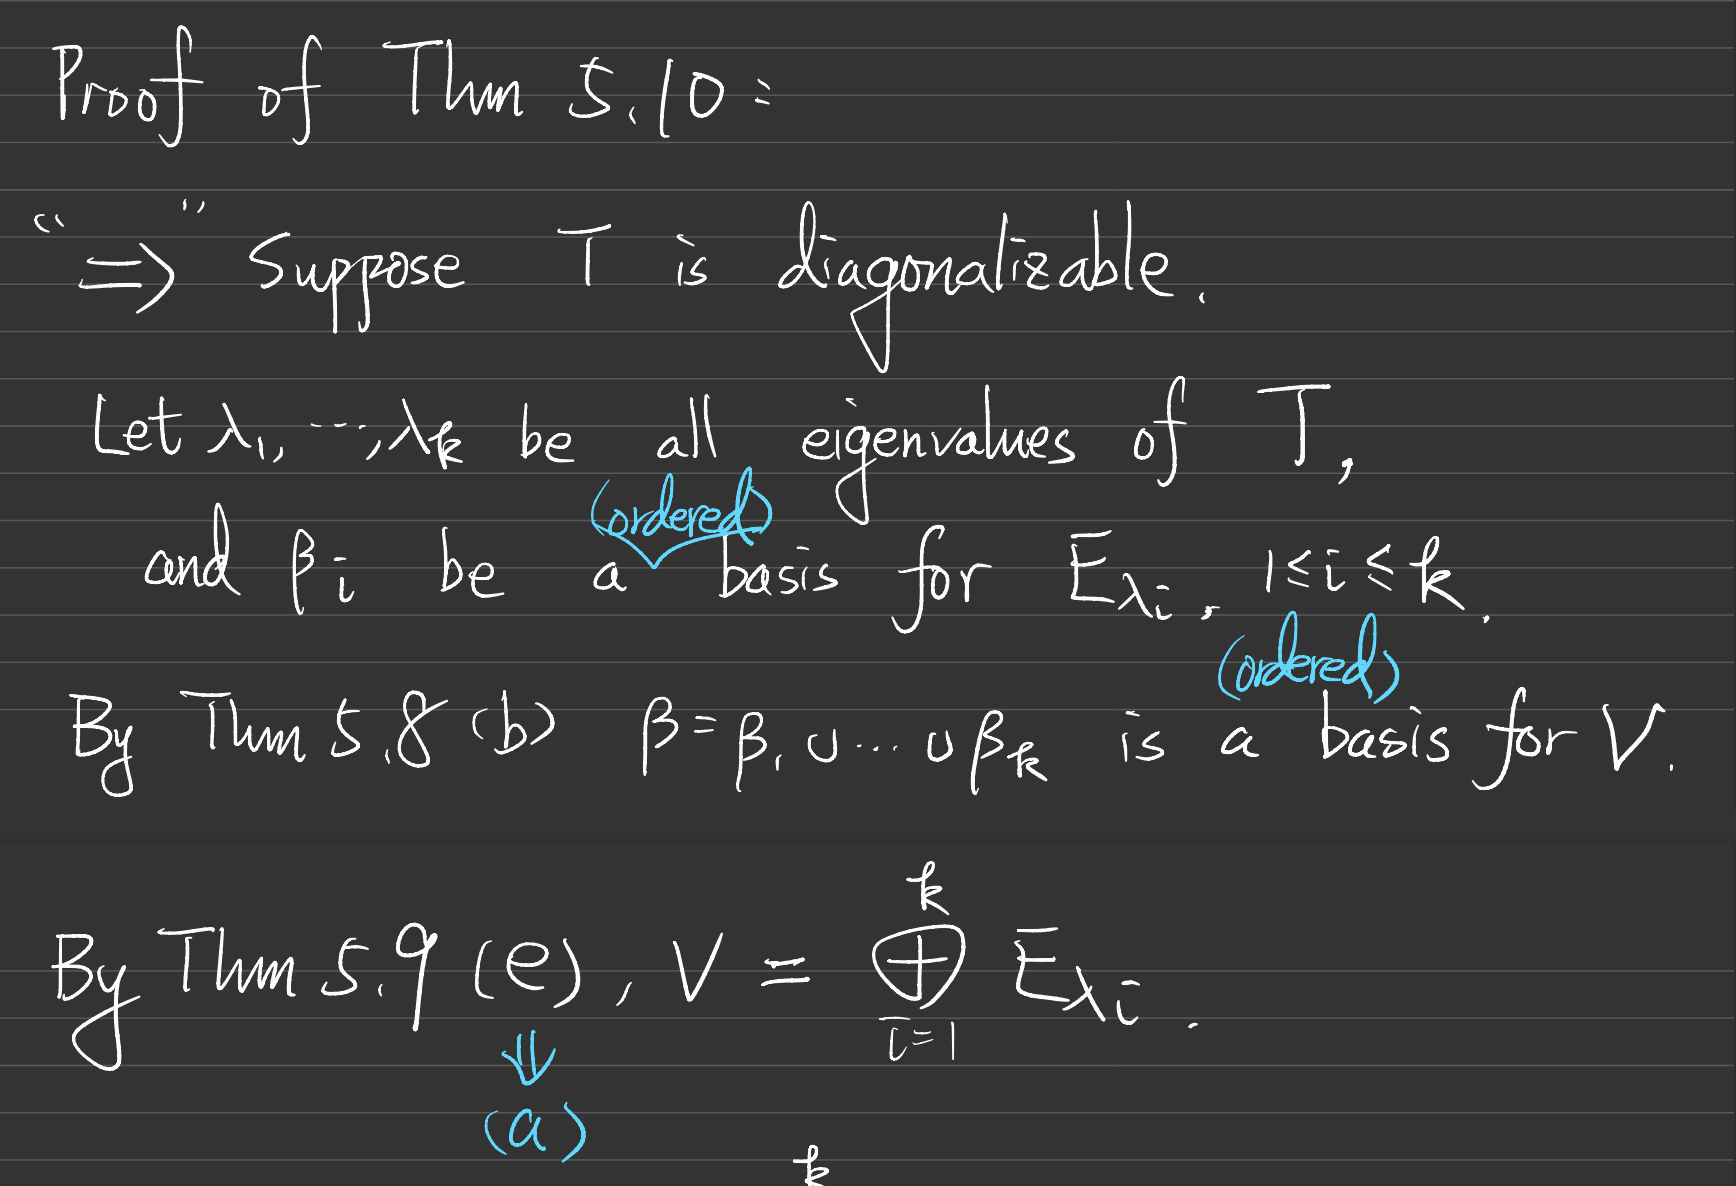 Proof of Thm 5.10:
"⇒" Suppose T is diagonalizable.
Let λ₁, ⋯, λₖ be all eigenvalues of T,
(ordered)
and βᵢ be a basis for E_λᵢ, 1≤i≤k.
(ordered)
By Thm 5.8 (b) β = β₁ ∪ ⋯ ∪ βₖ is a basis for V.
By Thm 5.9 (e), V = ⊕_{i=1}^{k} E_λᵢ.
⇓
(a)
k